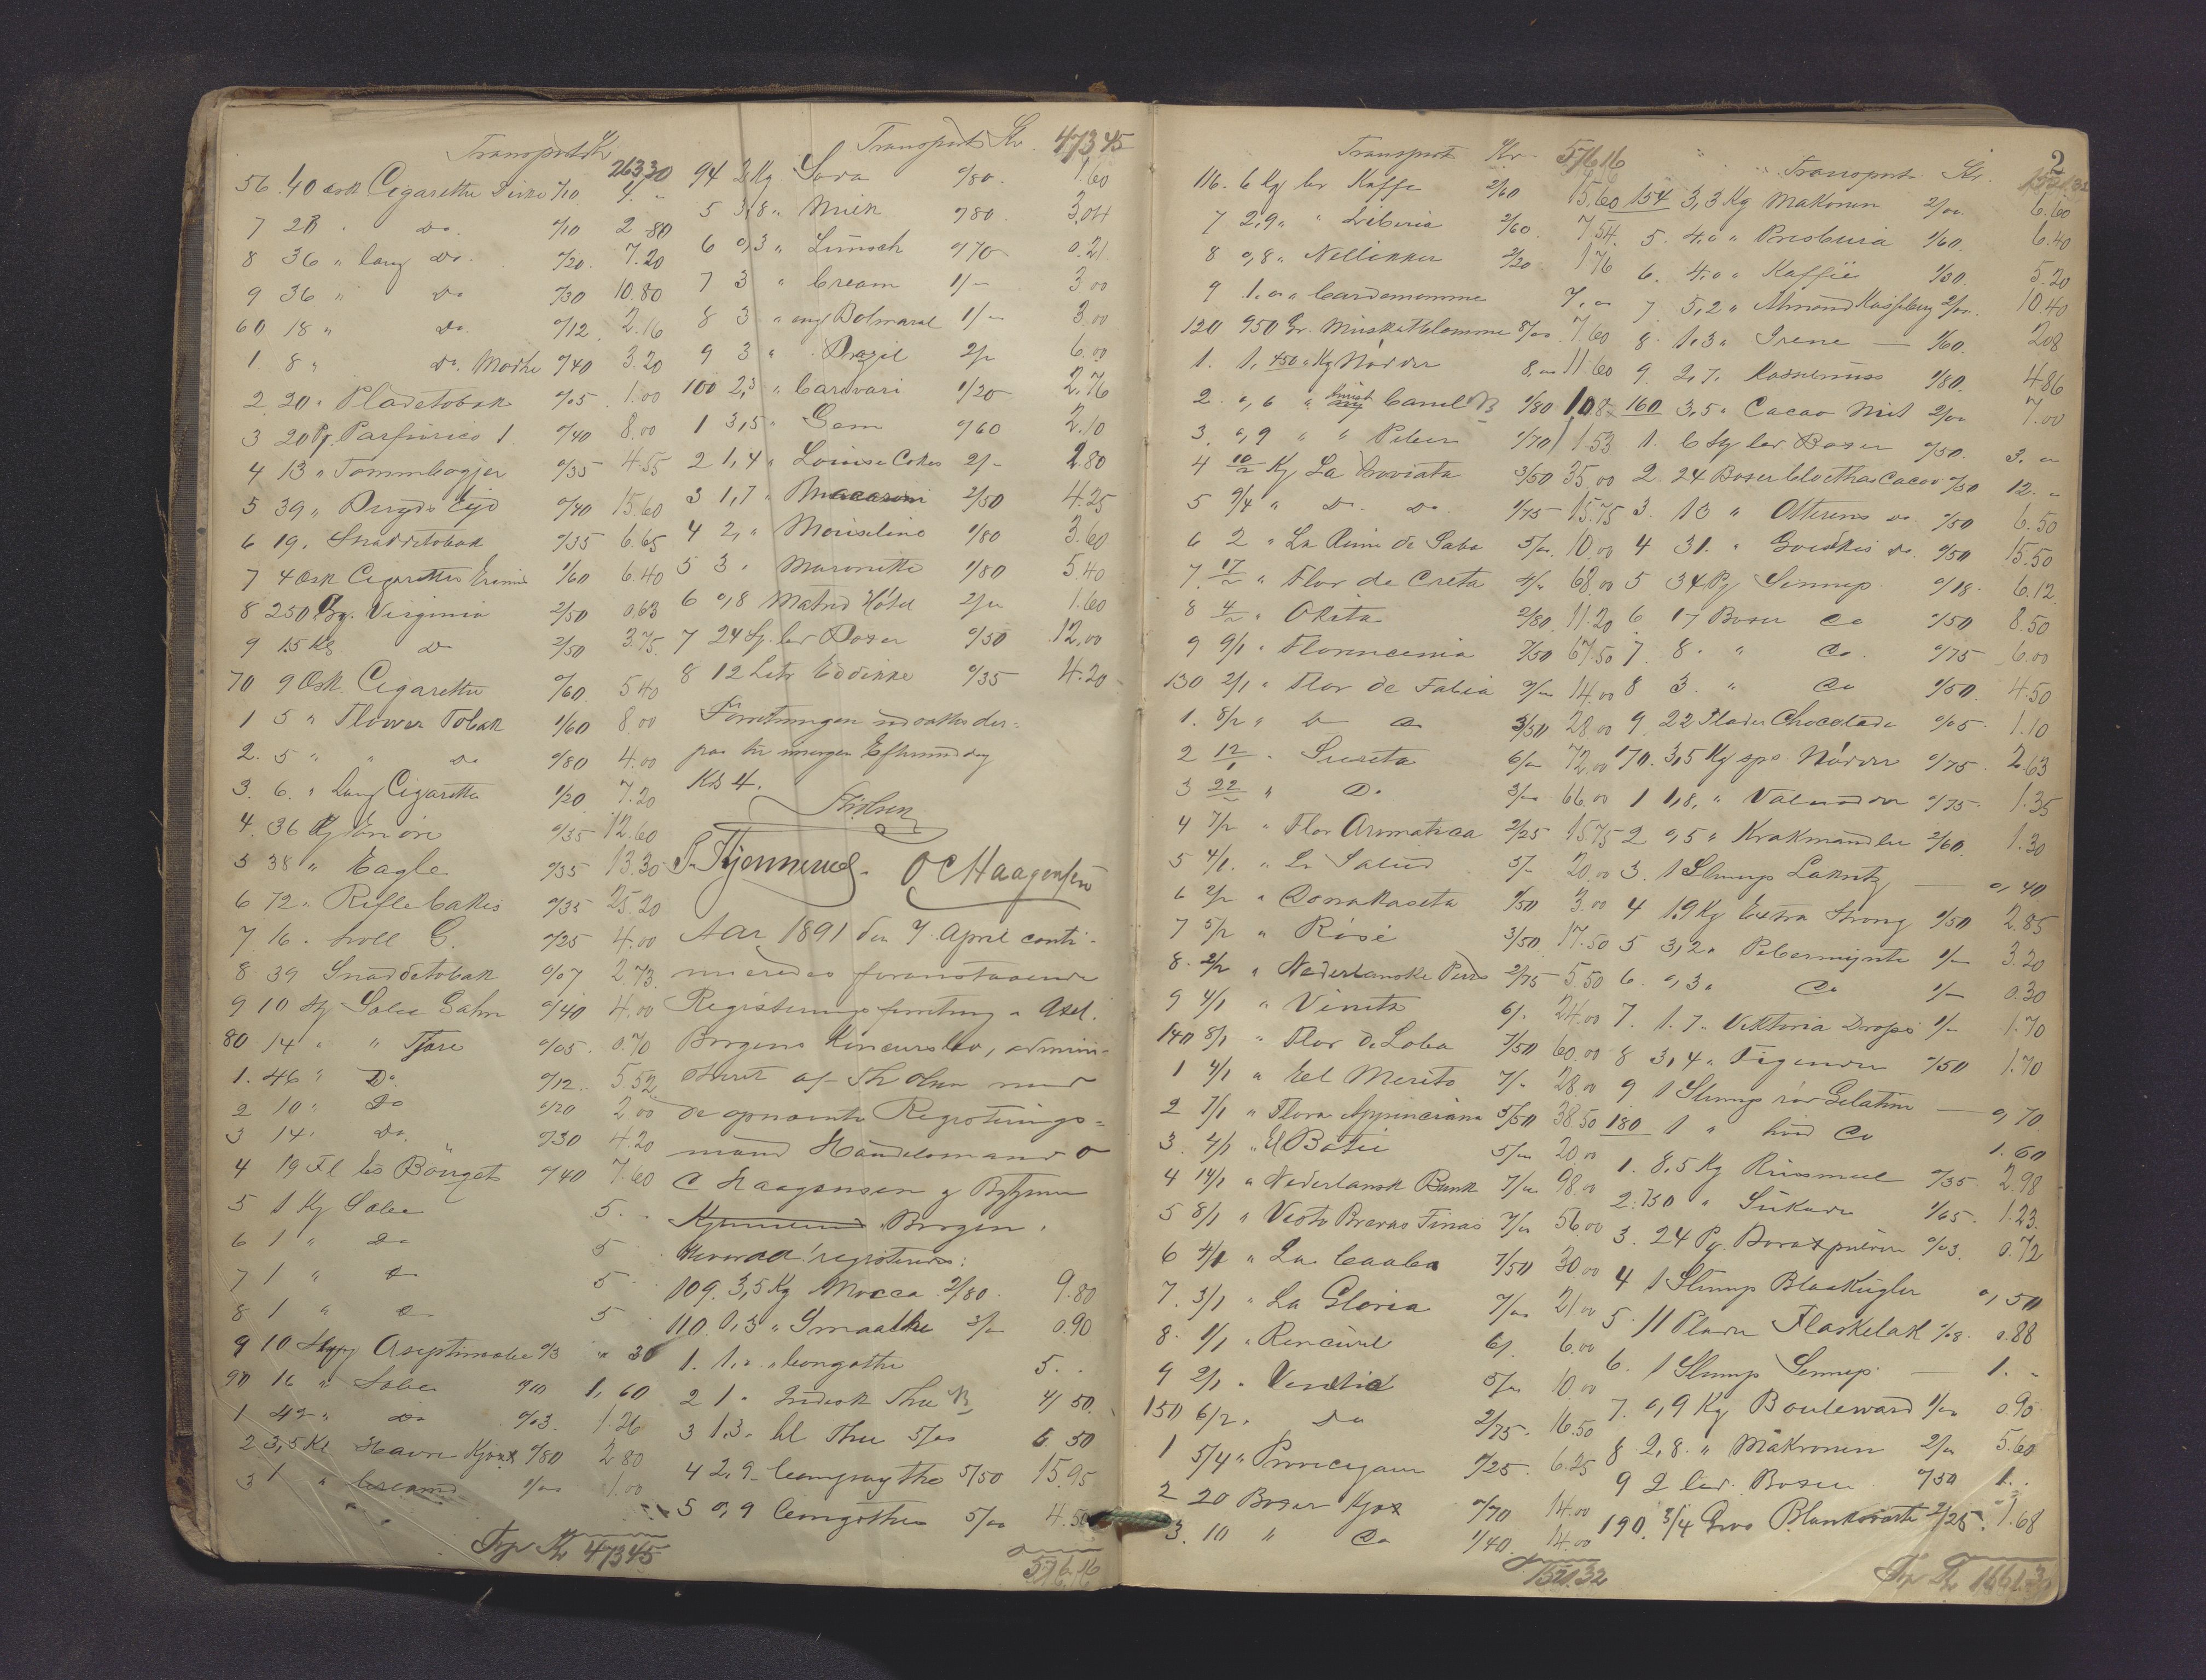 Transport Kr 263.30
56. 40 æsk Cigaretter Dirke 0/10 4. "
7 28 " Do. 0/10 2.80
8 36 " lang Do. 0/20. 7.20
9 36 " Do 0/30 10.80
60 18 " Do. 0/12. 2.16
1 8 " Do. Mørke 0/40 3.20
2 20 " Pladetobak 0/05 1.00
3 20 Pk. 0/40 8.00
4 13 " 0/35 4.55
5 39 " 0/40 15.60
6 19. Snaddetobak 0/35 6.65
7 4 Æsk Cigaretter 1/60 6.40
8 250 Gr. Virginia 2/50 0.63
9 1.5 Kg Do 2/50 3.75
70 9 Æsk. Cigaretter 0/60 5.40
1 5 " Flower Tobak 1/60 8.00
2. 5 " " Do 0/80 4.00
3. 6. " Lang Cigaretter 1/20 7.20
4. 36 0/35 12.60
5 38 " Eagle 0/35 13.30
6 72 " Rifle Cakes 0/35 25.20
7 16 . 0/25 4.00
8 39 Snaddetobak 0/07 2.73
9 10 St Sæbe 0/40 4.00
80 14 " " Tjære 0/05. 0.70
1. 46 " Do. 0/12. 5.52
2 10 " Do 0/20 2.00
3 14 " Do. 0/30 4.20
4 19 Fl 0/40 7.60
5 1 Kg Sæbe 5. -
6 1 " Do 5
7 1 " Do 5
8 1 " Do 5
9 10 Stkr Aseptinsæbe 0/3 " 30
90 16 " Sæbe 0/10 1,60
1 42 " Do 0/03. 1.26
2 3,5 Kl Havre Kjæx 0/80 2.80
3 1 " Cream 1/00 1.00
Trp Kr 473.45
Transport Kr 473.45
94 2 Kg Soda 0/80. 1.60
5 3,8 " Milk 0/80. 3.04
6 0,3 " Lunsch 0/70 0.21
7 3 " Cream 1/- 3.00
8 3 " engl Bolmaral 1/- 3.00
9 3 " Drazil 2/- 6.00
100 2,3 " Carivari 1/20 2.76
1 3,5 " Gem 0/60 2.10
2 1,4 " Louise Cakes 2/- 2.80
3 1,7 " Macaroni 2/50 4.25
4 2, " Mouseline 1/80 3.60
5 3 " Maronitte 1/80 5.40
6 0,8 Matrid Hôtel 2/00 1.60
7 24 St. ler Daaser 0/50 12.00
8 12 Litr Eddikke 0/35 4.20
Forretningen udsattes der-
paa til imorgen Eftermiddag
Kl 4.
Th Olsen
S. Kjennerud. O C Haagensen
Aar 1891 den 7. April conti-
nueredes foranstaaende
Registreringsforretning i Axel
Borgens Concursbo, admini-
streret af Th Olsen med
de opnævnte Registrerings-
mænd Handelsmand O
C Haagensen og Bygmr
Kjennerud Borgen.
Hvorved registreredes:
109. 3,5 Kg Mocca 2/80. 9.80
110 0,3 " Smaathe 3/00 0.90
1. 1,0 " Congothe 5. .
2 1 " Indisk The 4/50.
3 1,3 " bl Thee 5/00 6.50
4 2,9 " Congothe 5/50 15.95
5 0,9 Congothe 5/00 4.50
576.16
Transport Kr. 576.16
116. 6 Kg br Kaffe 2/60 15.60
7 2,9 " Liberia 2/60 7.54.
8 0,8 " Nelliker 2/20 1.76
9 1.0 " Cardemomme 7.00
120 950 Gr. Muskatblomme 8/00 7.60
1. 1,450 Kg Nødder 8,00 11.60
2. 0,6 " knust Canel 1/80 1.08
3. 0,9 " " Peber 1/70 1.53
4 10/2 Kg La Traviata 3/50 35.00
5 9/4 " Do. Do. 1/75 15.75
6 2 " La Reine de Saba 5/00. 10.00
7. 17/2 " Flor de Creta 4/00 68.00
8 4/2 " Okita 2/80 11.20
9 9/1 " Florencenia 7/50 67.50
130 2/1 " Flor de Fabia 7/00 14.00
1. 8/2 " Do Do 3/50 28.00
2 12/1 " Suseta 6/00 72.00
3 22/2 " Do 3/00 66.00
4 7/2 " Flor Aromatica 2/25 15.75
5 4/1. " La Salud 5/- 20.00
6 2/2 " Donakaseta 1/50 3.00
7 5/2 " Risé 3/50 17.50
8. 2/2 " Nederlanske Perle 2/75 5.50
9 4/1 " Vineta 6/. 24.00
140 8/1 " Flor De Loba 7/50 60.00
1 4/1 " Eel Merito 7/. 28.00
2 7/1 " Flora Appenceiana 5/50 38.50
3. 4/1 " El Botii 5/00 20.00
4 14/1 " Nederlansk Bank 7/00 98.00
5 8/1 " Vesto Bravas Finas 7/00 56.00
6 4/1 " La Caaba 7/50 30.00
7. 3/1 " La Gloria 7/00 21.00
8. 1/1 " Rencurel 6/. 6.00
9 2/1 " Venetia 5/00 10.00
150 6/2. Do 2/75. 16.50
1 5/4 " Prøvecigarer 1/25. 6.25
2 20 Boxer Kjæx 0/70 14.00
3. 10 " Do 1/40. 14.00
1521.32
2
Transport Kr. 1521.32
154 3,3 Kg Makronen 2/00. 6.60
5. 4.0 " Presburia 1/60. 6.40
6. 4.0 " Kaffee 1/30. 5.20
7. 5,2 " Almond 2/00. 10.40
8. 1,3 " Irene — 1/60. 2.08
9. 2,7. 1/80. 4.86
160 3,5 " Cacao Nut 2/00 7.00
1. 6 St ler Daaser 0/50. 3. 00
2. 24 Boxer Cloettas Cacao 0/50 12. "
3. 13 " Otterens Do 0/50 6.50
4 31. " Goedkes Do. 0/50 15.50
5 34 Pk Sennep. 0/18. 6.12.
6 17 Boxer Do 0/50 8.50
7. 8. " Do. 0/75 6.00
8 3. " Do 1/50. 4.50
9. 22 Plader Chocolade 0/05. 1.10
170. 3,5 Kg sps. Nødder 0/75. 2.63
1 1,8, " Valnødder 0/75. 1.35
2 0,5 " Krakmandler 2/60. 1.30
3. 1 Slump Lakritz — 0,40
4 1,9 Kg Extra Strong 1/50 2.85
5 3,2 " Pebermynte 1/- 3.20
6. 0,3 " Do 1/- 0.30
7. 1.7 " Viktoria Drops 1/- 1.70
8 3,4 " Figener 0/50 1.70
9 1 Slump rød Gelatin — 0,70
180 1 " hvid Do 1.60
1. 8,5 Kg Riismeel 0/35. 2.98
2. 750 " Sukade 1/65. 1.23.
3. 24 Pk. Boraxpulver 0/03. 0.72
4 1 Slump Blaakugler 0,50
5. 11 Plader Flaskelak 0/08. 0.88
6. 1 Slump Sennep. — 1. -
7. 0,9 Kg Bouleward 1/00 0.90
8 2,8. " Makronen 2/00 5.60
9 2 ler. Daaser 0/50 1..
190. 3/4 Gros Blanksværte 2/25. 1.68
Trp Kr 1661.30